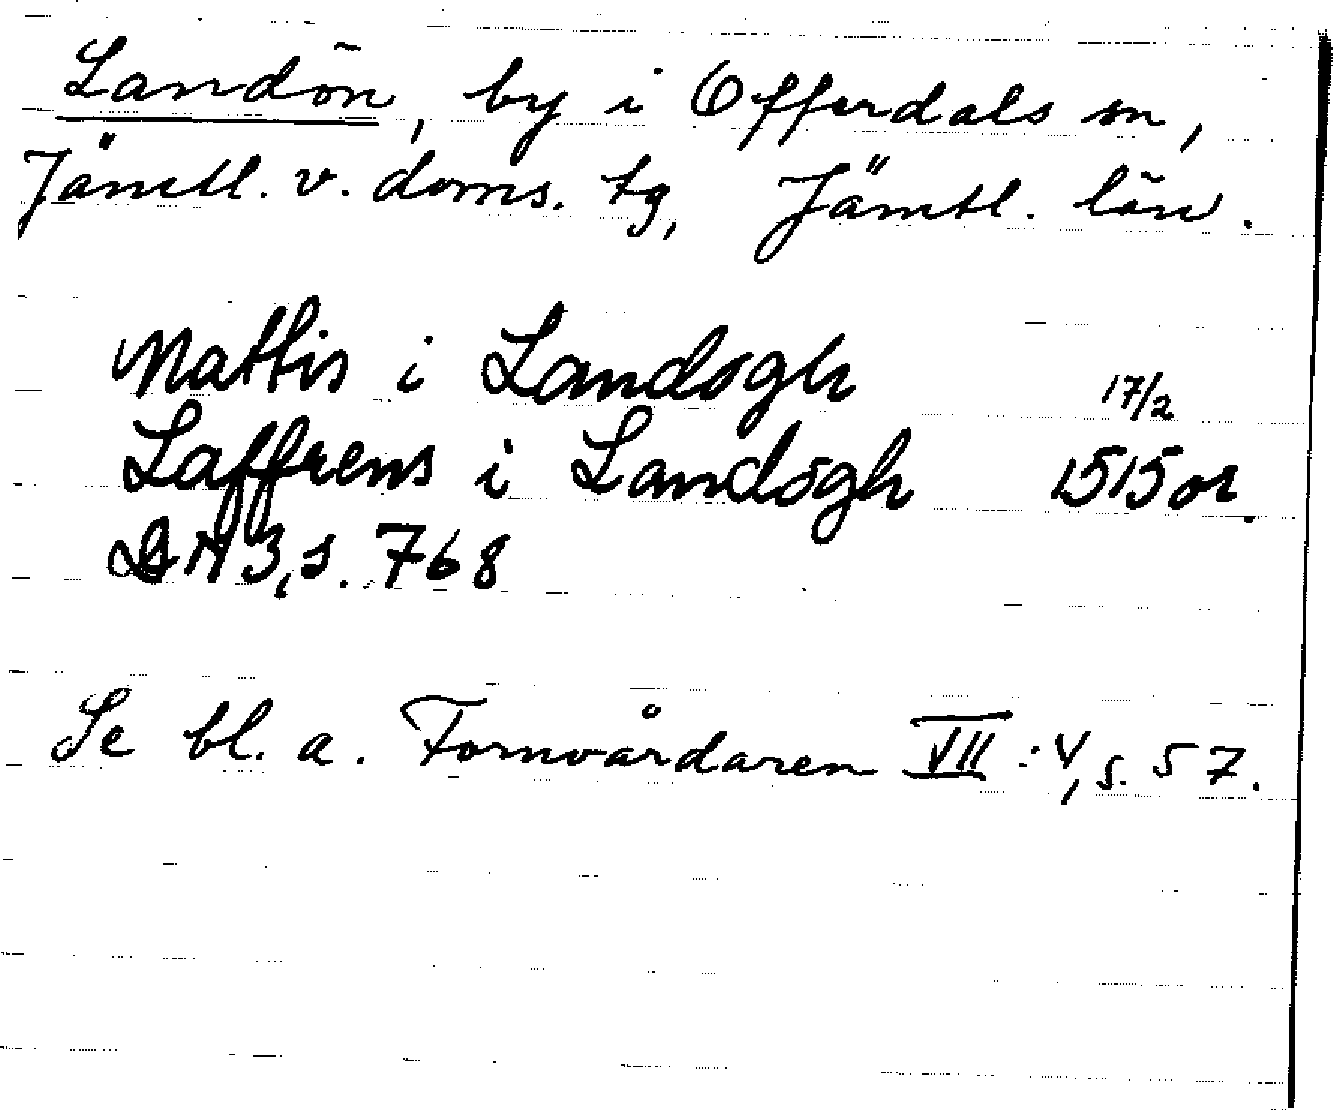 Landön, by i Offerdals sn,
Jämtl. v. doms. tg, Jämtl. län.
Mattis i Landsogh 17/2
Laffrens i Landsøgh 1515 or.
DN 3, s. 768
Se bl. a. Fornvårdaren VII:4, s. 57.